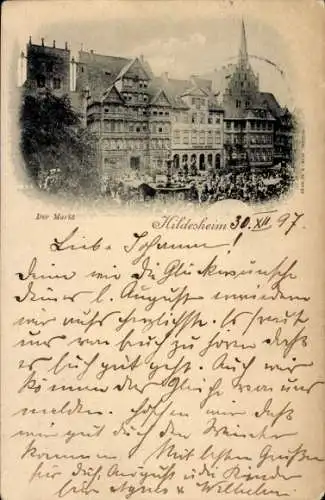 Der Markt
Hildesheim 30. XII 97.
Liebe Johanna!
Dein wie die Glückwünsche
Deines l. August erwiedern
wir aufs herzlichste. Es freut
uns von Euch zu hören daß
es Euch gut geht. Auch wir
können das Gleiche von uns
melden. Hoffen wir daß
wir gut durch den Winter
kommen. Mit besten Grüßen
für Dich, August u. die Kinder
Agnes u. Wilhelm.